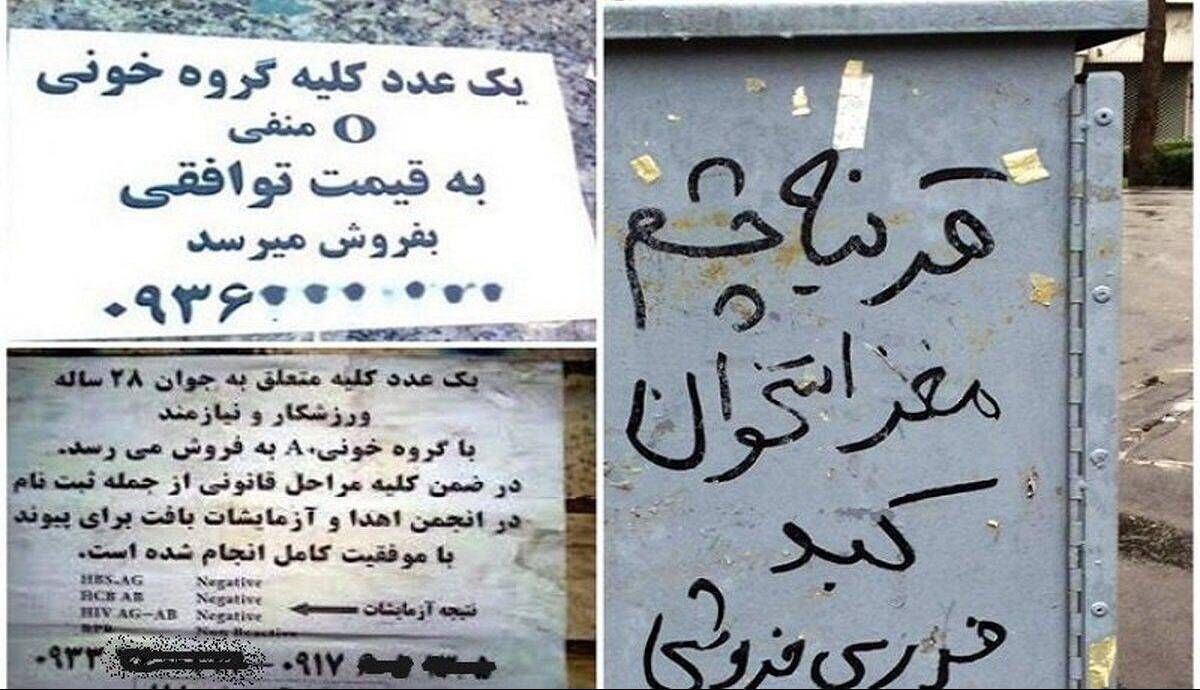 یک عدد کلیه گروه خونی
O منفی
به قیمت توافقی
بفروش میرسد
۰۹۳۶
یک عدد کلیه متعلق به جوان ۲۸ ساله
ورزشکار و نیازمند
با گروه خونی A+ به فروش می رسد.
در ضمن کلیه مراحل قانونی از جمله ثبت نام
در انجمن اهدا و آزمایشات بافت برای پیوند
با موفقیت کامل انجام شده است.
HBS.AG Negative
HCB AB Negative
HIV AG-AB Negative نتیجه آزمایشات
۰۹۳۳ - ۰۹۱۷
قرنیه چشم
مغز استخوان
کبد
فوری فروشی